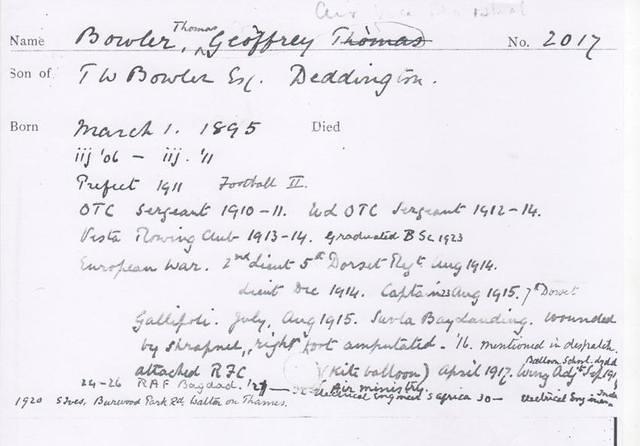 Name Bowler, Thomas Geoffrey Thomas No. 2017
Son of T W Bowler Esq. Deddington.
Born March 1. 1895 Died
iij '06 – iij. '11
Prefect 1911 Football II.
OTC Sergeant 1910–11. OTC Sergeant 1912–14.
Vesta Rowing Club 1913–14. Graduated BSc 1923
European War. 2nd Lieut 5th Dorset Regt. Aug 1914.
Lieut Dec 1914. Captain 23 Aug 1915. 7th Dorset
Gallipoli. July, Aug 1915. Suvla Bay landing. Wounded
by shrapnel, right foot amputated. '16. mentioned in despatch.
Balloon School.
attached RFC (Kite balloon) April 1917. Wing Adjt Sep 191
24–26 RAF Bagdad. Air Ministry.
1920 Burwood Park Rd. Walton on Thames. Electrical Engineer S Africa 30 – Electrical Engineer